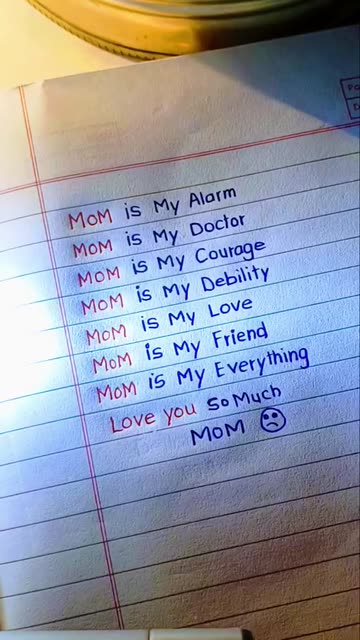 MOM is My Alarm
MOM is My Doctor
MOM is My Courage
MOM is My Debility
MOM is My Love
MOM is My Friend
MOM is My Everything
Love you So Much
MOM ☹